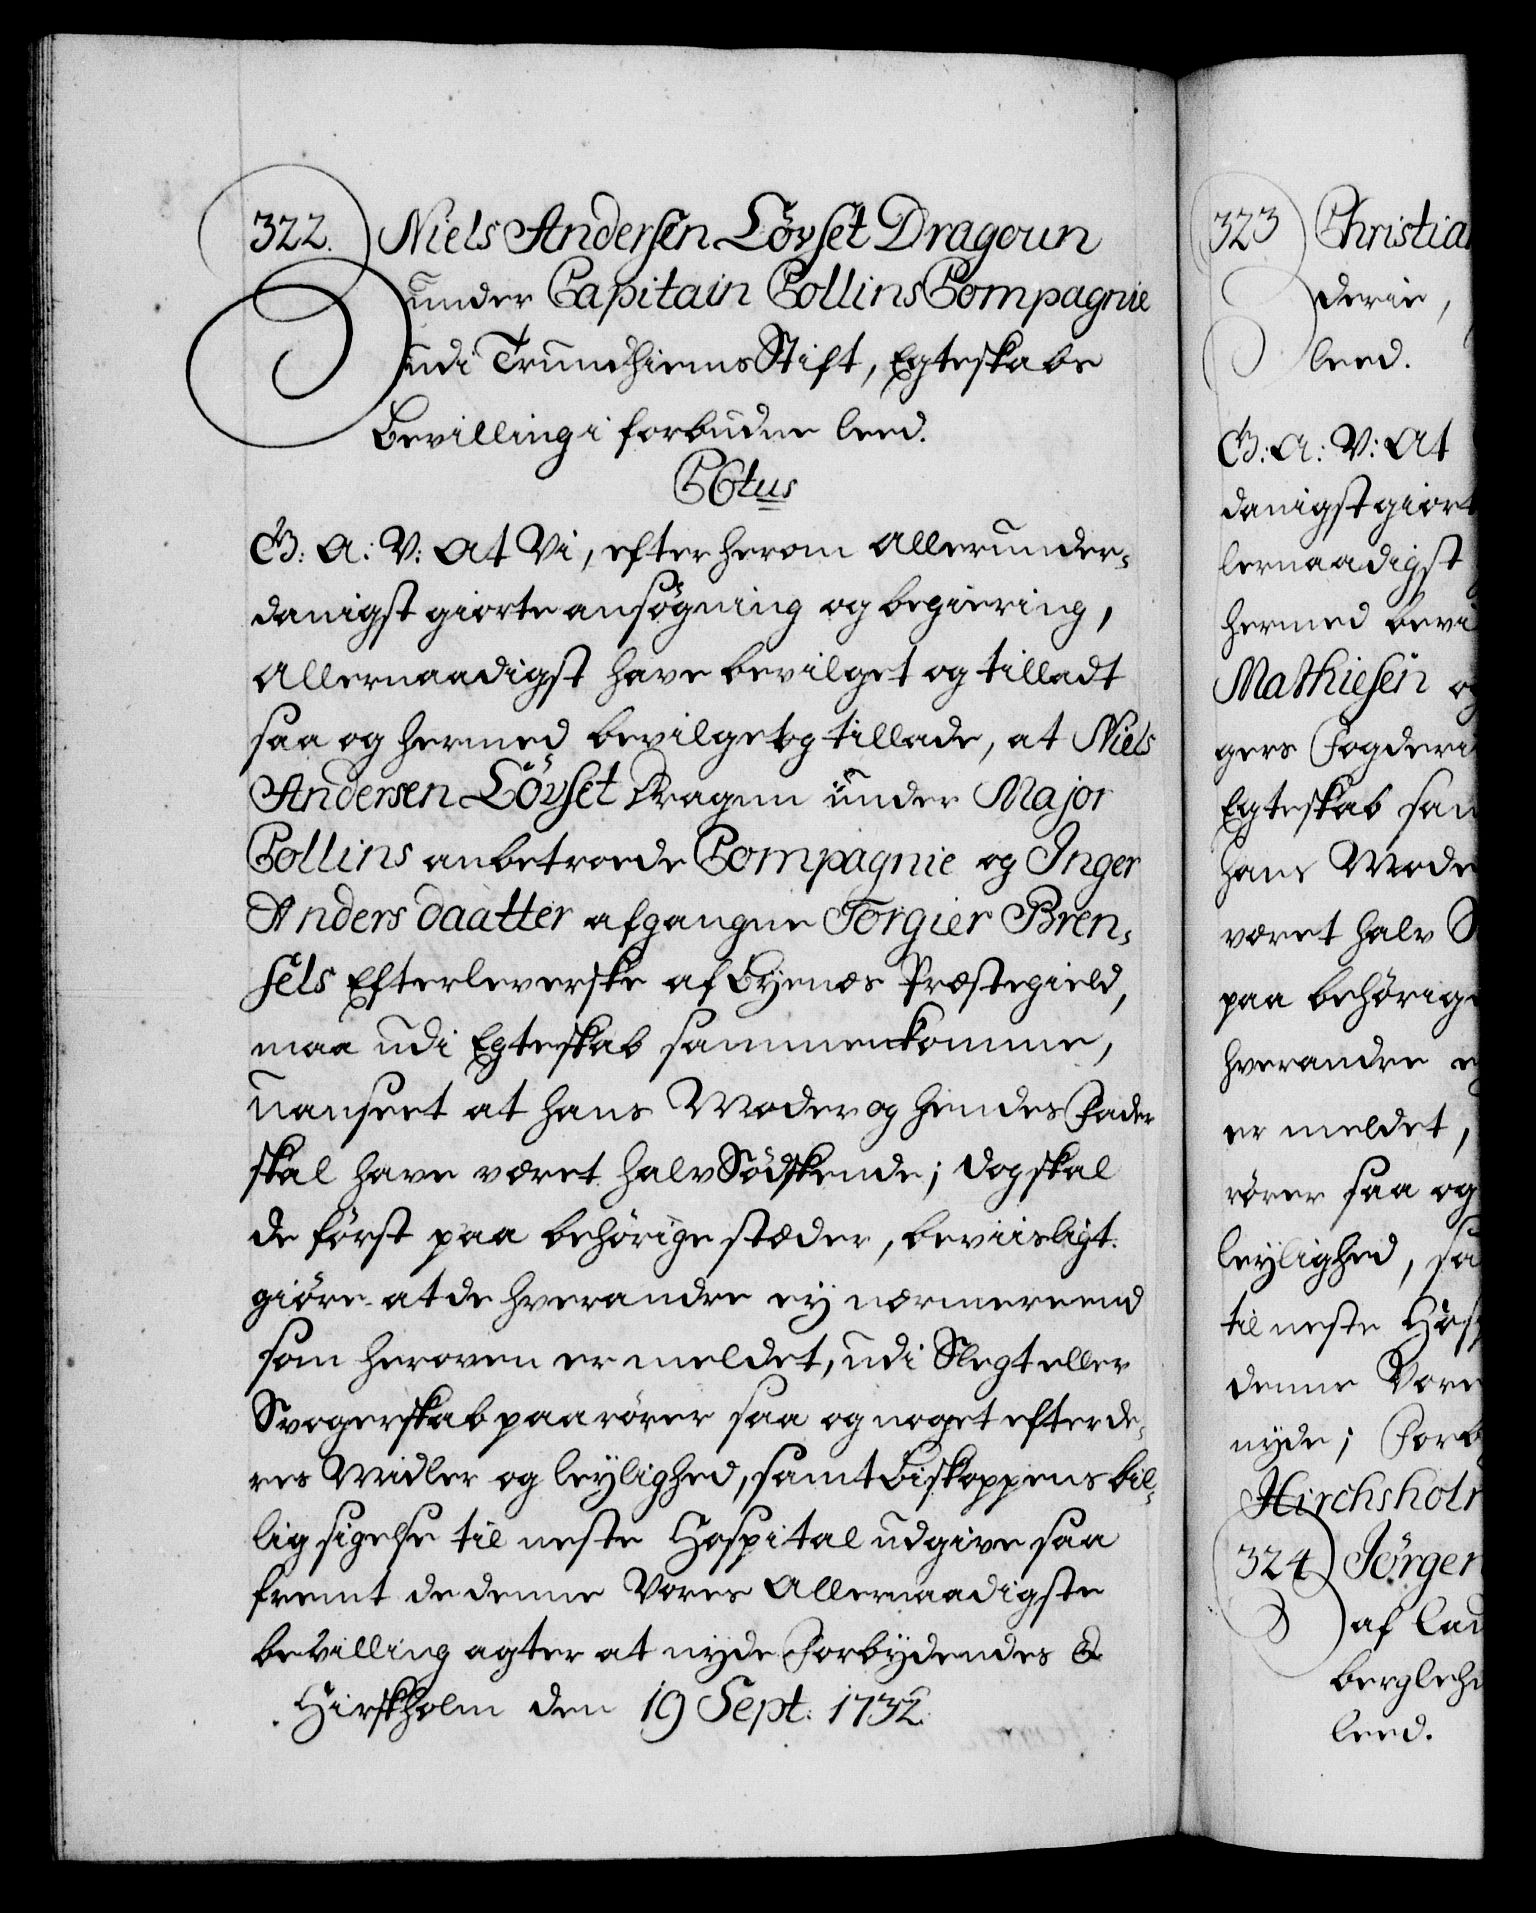 322. Niels Andersen Lövset Dragoun
under Capitain Collins Compagnie
udi Trundhiems Stift, Egteskabs
Bevilling i forbudne leed.
C6tus
G: A: V: At Vi, efter herom allerunder-
danigst giorte ansögning og begiering,
allernaadigst have bevilget og tilladt
saa og hermed bevilget og tillade, at Niels
Andersen Lövset Dragun under Major
Collins anbetroede Compagnie og Inger
Anders daatter afgangne Torgier Bren-
sels Efterleverske af Byenæs Præstegield,
maa udi Egteskab sammenkomme,
uanseet at hans Moder og hendes Fader
skal have været halv Södskende; dog skal
de först paa behörige stæder, beviisligt.
giöre at de hverandre ey nærmere end
som heroven er meldet, udi Slegt eller
Svogerskab paarörer saa og noget efter de-
res Midler og leylighed, samt Biskoppens bil-
lig sigelse til neste Hospital udgive saa
fremt de denne Vores Allernaadigste
bevilling agter at nyde Forbydendes &
Hirskholm den 19 Sept: 1732.
323 Christia
derie,
leed.
G: A: V: At
danigst giort
lernaadigst
hermed bevi
Mathiesen og
gers Fogderi
Egteskab sam
hans Mode
været halv S
paa behörige
hverandre ey
er meldet,
rörer saa og
leylighed, sa
til neste Hosp
denne Vore
nyde; Forb
Hirchsholm
324 Jörgen
af Lau
bergleh
leed.